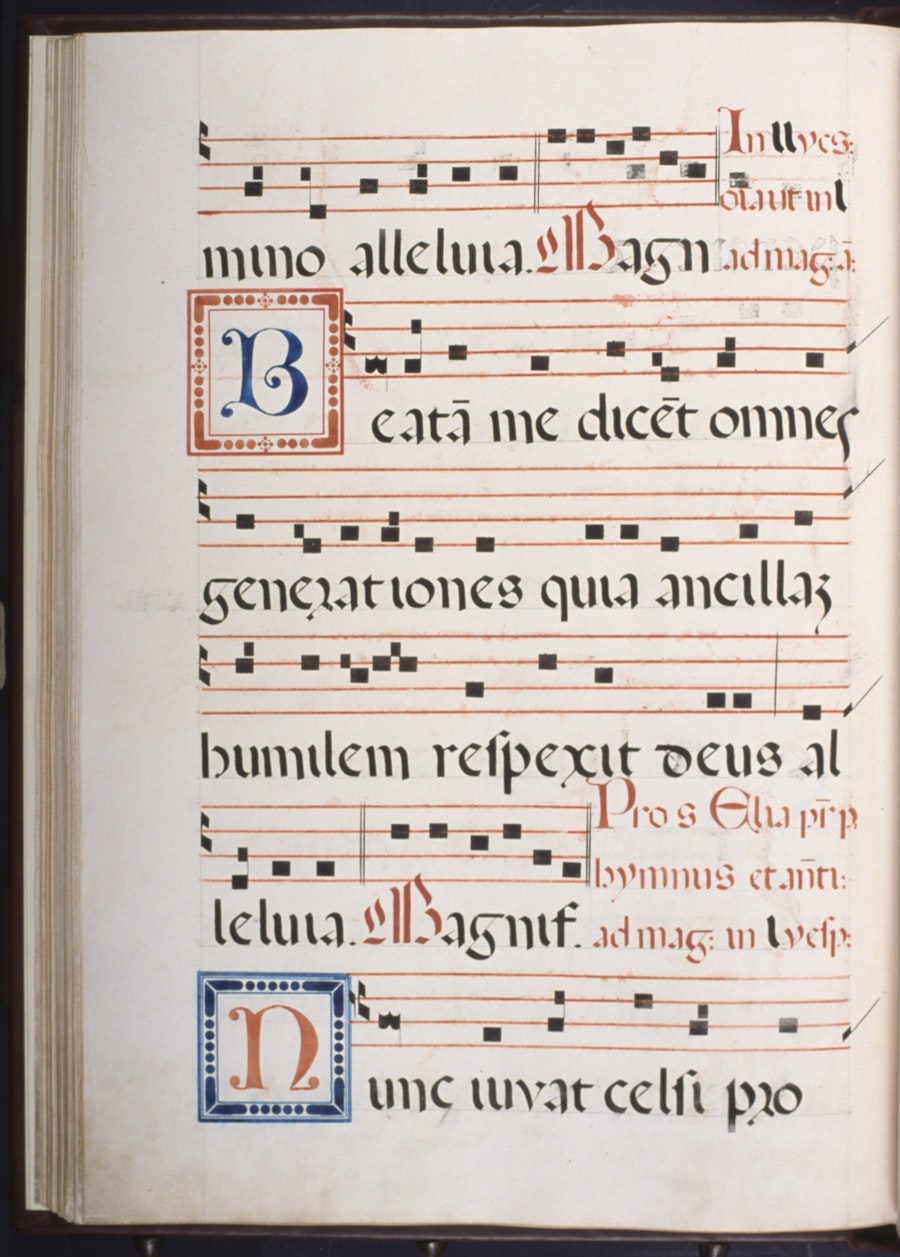 In II ves:
oia ut in I
mino alleluia. Magn ad mag: ā:
Beatā me dicēt omnes
generationes quia ancillaʒ
humilem respexit deus al
Pro s Elia pr̄ p.
hymnus et an̄ti:
leluia. Magnif. ad mag: in I vesp:
Nunc iuvat celsi pro